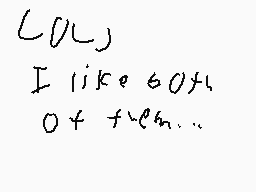 LOL,
I like both
of them...